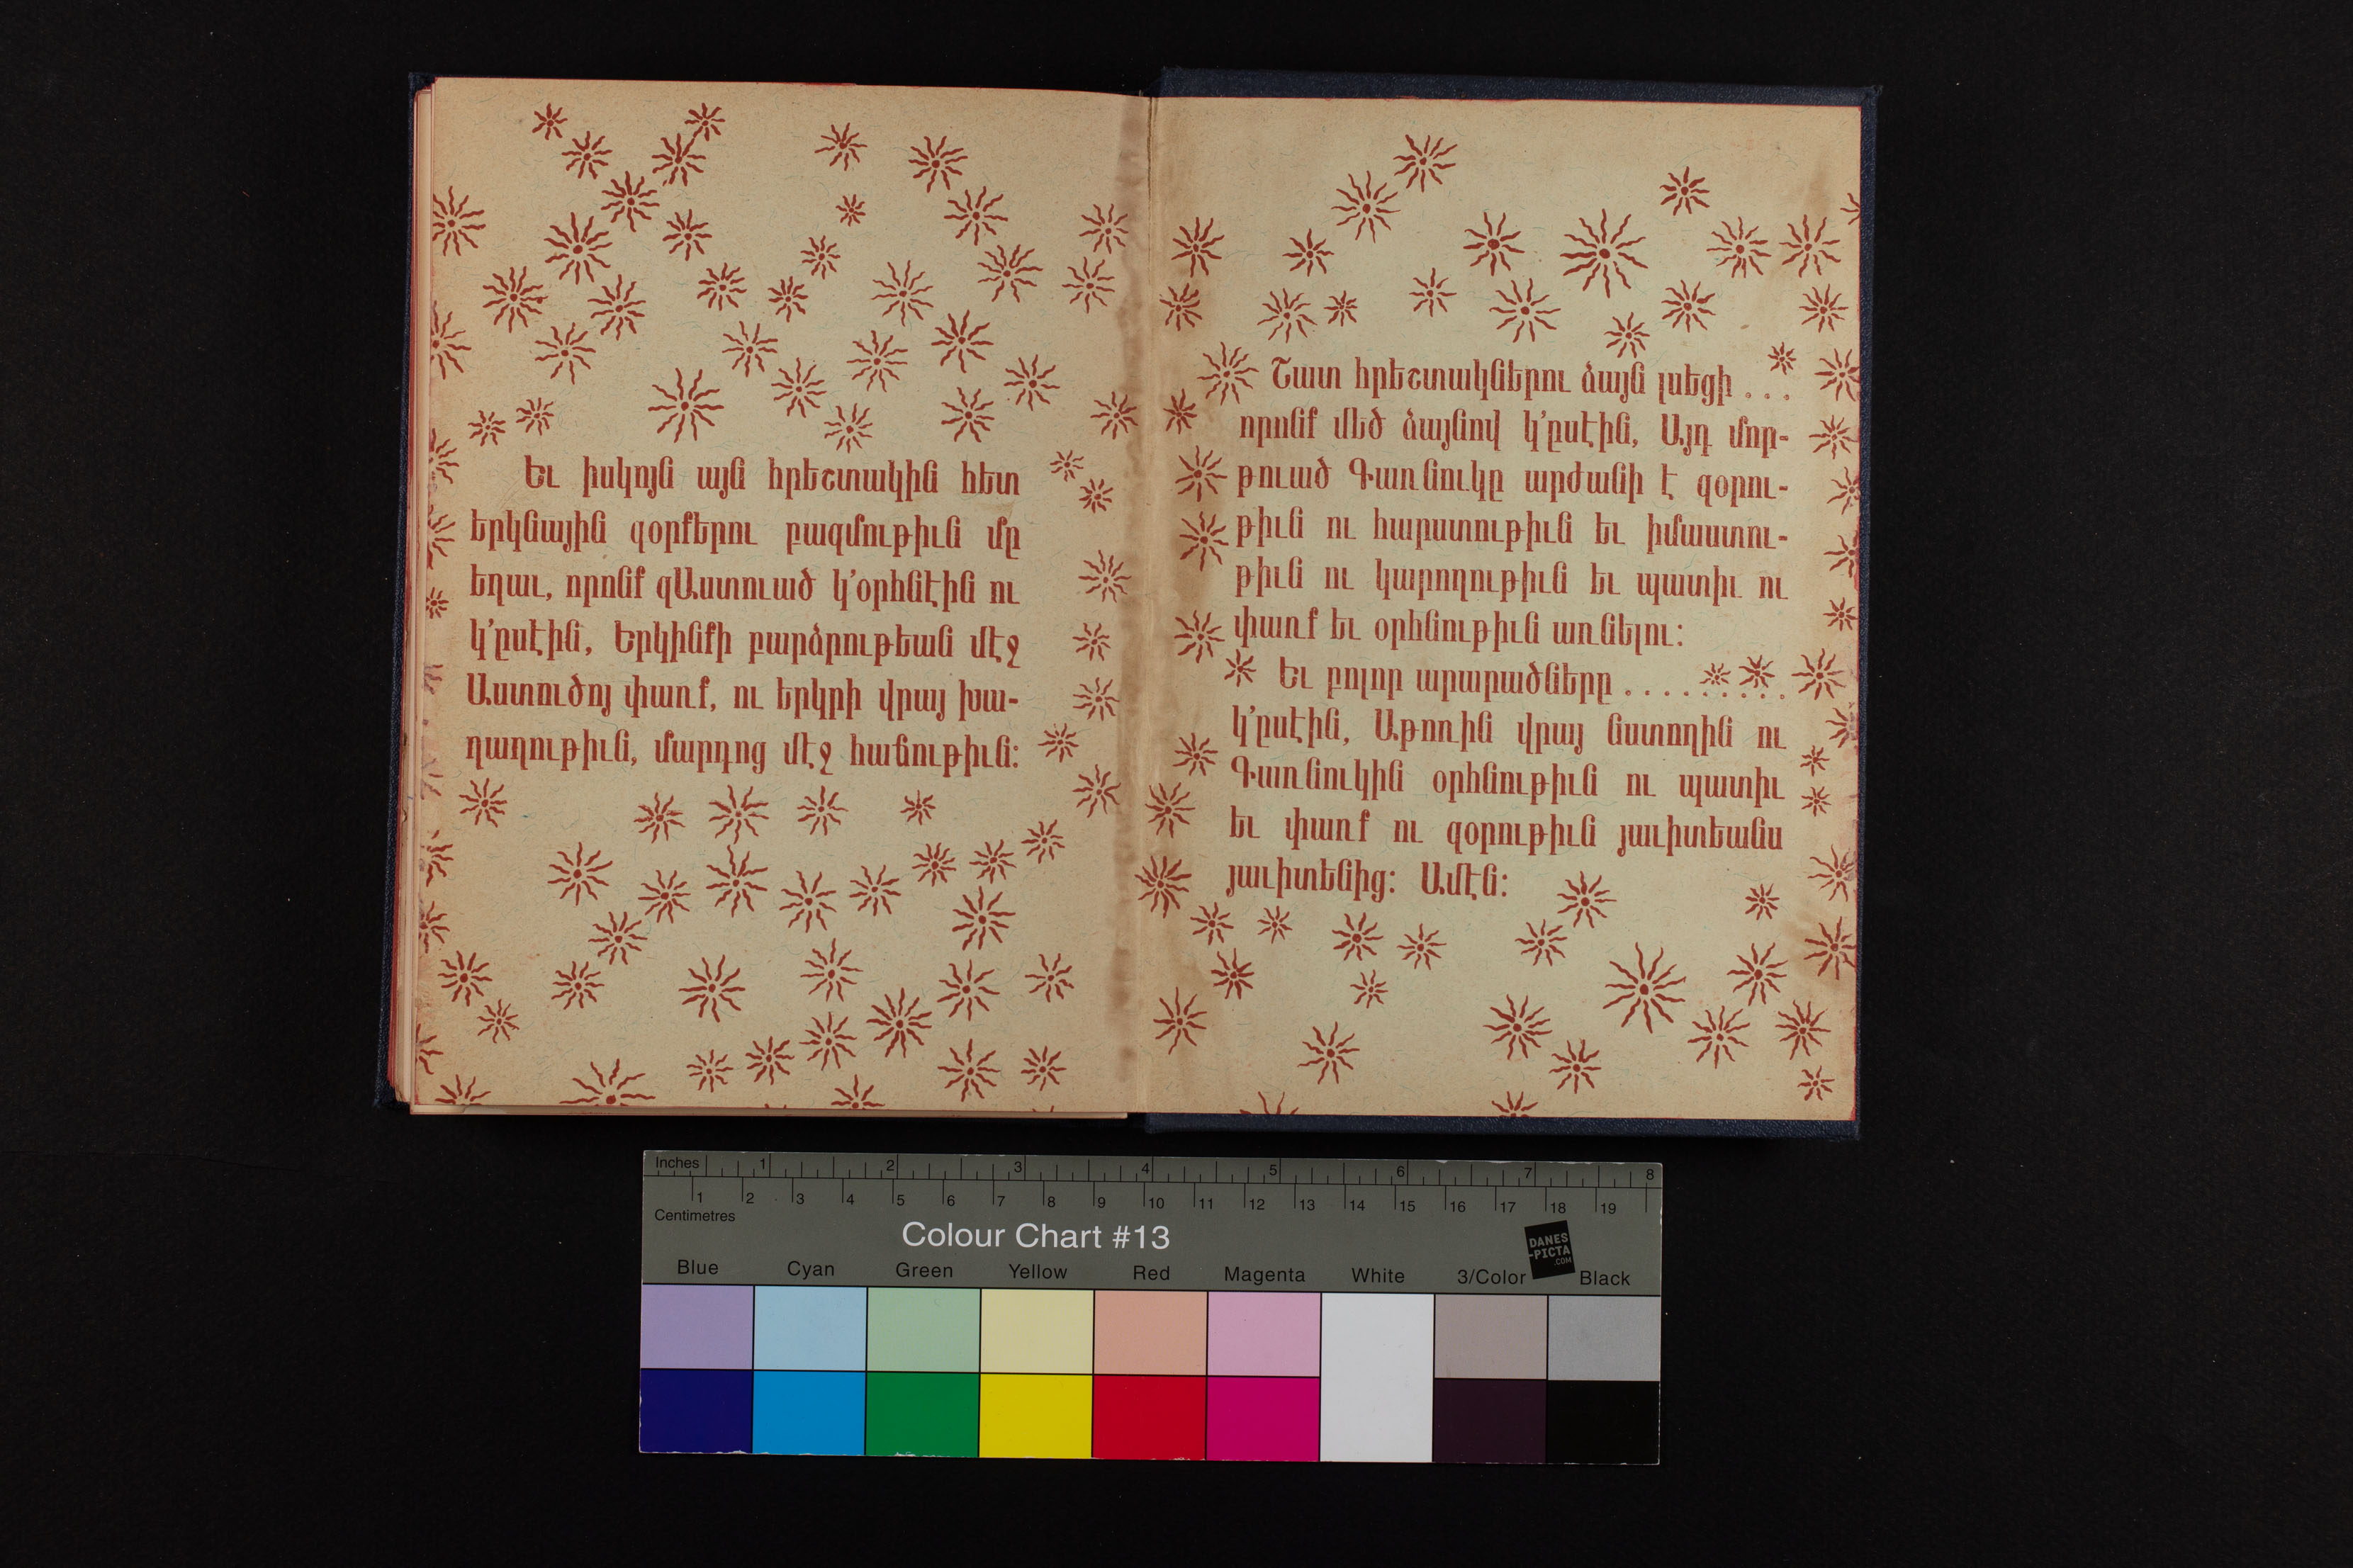 Եւ իսկոյն այն հրեշտակին հետ
երկնային զօրքերու բազմութիւն մը
եղաւ, որոնք զԱստուած կ՚օրհնէին ու
կ՚ըսէին, Երկինքի բարձրութեան մէջ
Աստուծոյ փառք, ու երկրի վրայ խա-
ղաղութիւն, մարդոց մէջ հաճութիւն։
Շատ հրեշտակներու ձայն լսեցի . . .
որոնք մեծ ձայնով կ՚ըսէին, Այդ մոր-
թուած Գառնուկը արժանի է զօրու-
թիւն ու հարստութիւն եւ իմաստու-
թիւն ու կարողութիւն եւ պատիւ ու
փառք եւ օրհնութիւն առնելու։
Եւ բոլոր արարածները . . . . . . . . .
կ՚ըսէին, Աթոռին վրայ նստողին ու
Գառնուկին օրհնութիւն ու պատիւ
եւ փառք ու զօրութիւն յաւիտեանս
յաւիտենից։ Ամէն։
Inches 1 2 3 4 5 6 7 8
1 2 3 4 5 6 7 8 9 10 11 12 13 14 15 16 17 18 19
Centimetres
Colour Chart #13
DANES
-PICTA
.COM
Blue Cyan Green Yellow Red Magenta White 3/Color Black